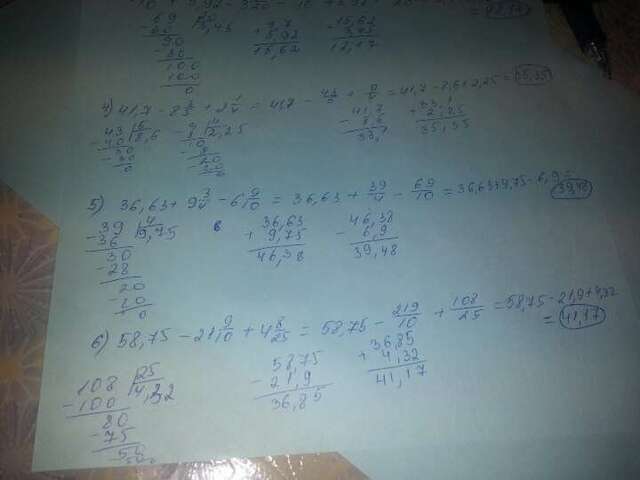 69 | 20
3,45
90
100
100
0
9,7
+ 5,92
15,62
- 15,62
3,45
12,17
4) 41,7 - 8 3/5 + 2 1/4 = 41,7 - 43/5 + 9/4 = 41,7 - 8,6 + 2,25 = 35,35
- 43 | 5
40 | 8,6
- 30
30
0
- 9 | 4
8 | 2,25
10
- 8
- 20
20
0
- 41,7
8,6
33,1
+ 33,1
2,25
35,35
5) 36,63 + 9 3/4 - 6 9/10 = 36,63 + 39/4 - 69/10 = 36,63 + 9,75 - 6,9 = 39,48
- 39 | 4
36 | 9,75
30
- 28
20
- 20
0
+ 36,63
9,75
46,38
- 46,38
6,9
39,48
6) 58,75 - 21 9/10 + 4 8/25 = 58,75 - 219/10 + 108/25 = 58,75 - 21,9 + 4,32 = 41,17
- 108 | 25
100 | 4,32
80
- 75
50
- 58,75
21,9
36,85
+ 36,85
4,32
41,17